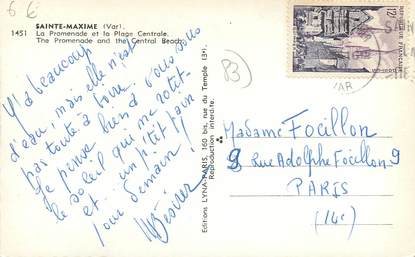 6 €
SAINTE-MAXIME (Var).
1451 La Promenade et la Plage Centrale.
The Promenade and the Central Beach.
Y'a beaucoup
d'eau, mais elle n'est
pas toute à boire.
Je pense bien à vous sous
le soleil qui me rotit-
et... un p'tit faim
pour demain!
Editions LYNA-PARIS, 160 bis, rue du Temple (3e).
Reproduction interdite.
B
12F
VAR
Madame Focillon
9 Rue Adolphe Focillon 9
PARIS
(14e)